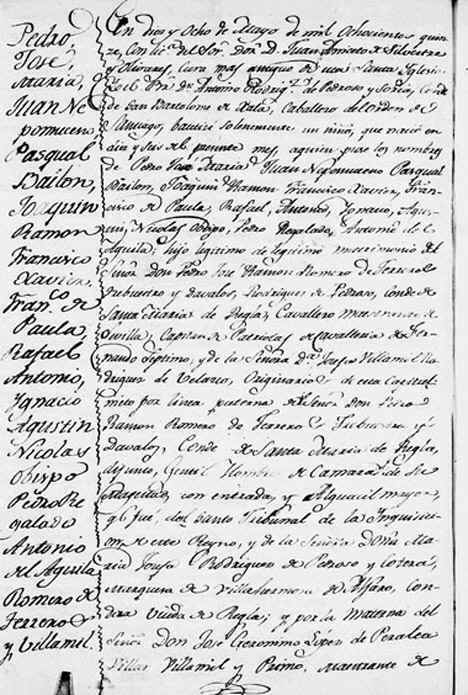 Pedro
José,
Maria,
Juan Ne
pomuceno,
Pasqual
Bailon,
Joaquin
Ramon
Francisco
Xavier,
Fran.co de
Paula,
Rafael
Antonio,
Ignacio
Agustin
Nicolas
Obispo
Pedro Re
galado
Antonio
del Aguila
Romero de
Terreros
y Villamil.
En dies y Ocho de Mayo de mil Ochocientos quin
ze, con lic.a del Sor. Dor. D. Juan de Silvestre
y Olivares, Cura mas antiguo de esta Santa Iglesia
Antonio Rodrig.z de Pedroso y Soria, Conde
de San Bartolome de Xala, Caballero del Orden de
Santiago, bautizé solemnemente un niño, que nació en
dies y seis del presente mes, aquien puso los nombres
de Pedro José Maria Juan Nepomuceno Pasqual
Bailon, Joaquin Ramon Francisco Xavier, Fran-
cisco de Paula, Rafael, Antonio, Ignacio, Agus-
tin, Nicolas Obispo, Pedro Regalado, Antonio del
Aguila; hijo legitimo de legitimo matrimonio del
Señor Don Pedro José Ramon Romero de Terreros
Trebuesto y Davalos, Rodriguez de Pedroso, Conde de
Santa Maria de Regla, Cavallero Maestrante de
Sevilla, Capitan de Patriotas de Cavalleria de Fer-
nando Septimo, y de la Señora D.a Josefa Villamil Ro-
driguez de Velasco, Originarios de esta Corte
nieto por linea paterna del Señor Don Pedro
Ramon Romero de Terreros Trebuesto y
Davalos, Conde de Santa Maria de Regla,
difunto, Gentil Hombre de Camara de Su
Magestad con entrada, y Alguacil mayor,
q.e fué del Santo Tribunal de la Inquisicion
de este Reyno, y de la Señora Doña Ma-
ria Josefa Rodriguez de Pedroso y Cotera,
Marquesa de Villahermosa de Alfaro, Con-
desa Viuda de Regla; y por la Materna del
Señor Don José Geronimo Lopez de Peralta
Villar Villamil y Primo, Maestrante de